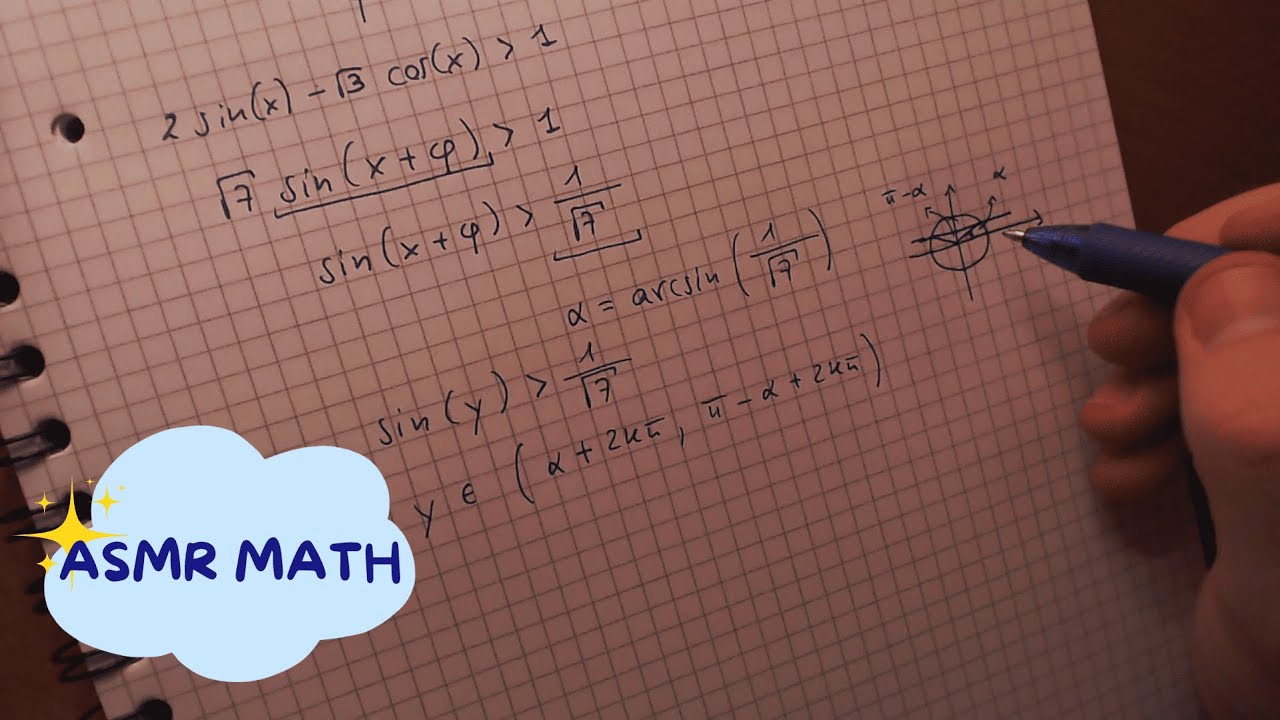 2 sin(x) - √3 cos(x) > 1
√7 sin(x + φ) > 1
sin(x + φ) > 1/√7
α = arcsin(1/√7)
π - α
α
sin(y) > 1/√7
y ∈ (α + 2kπ, π - α + 2kπ)
ASMR MATH